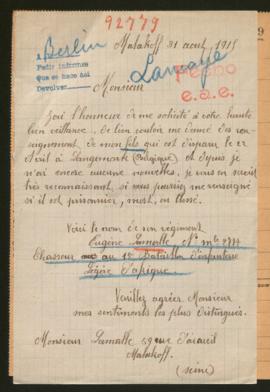 92779
à Berlin
Pedir informes
Que se hace aci
Devolver
Malakoff 31 août 1915
Lamalle
e.a.e.
Monsieur
J'ai l'honneur de me solicité à votre haute
bien veillance, de bien vouloir me donné des ren
seignement, de mon fils qui est disparu le 22
Avril à Langemarck (Belgique) et depuis je
n'ai encore aucune nouvelles, je vous en serait
très reconnaissant, si vous pouviez me renseigné
si il est prisonnier, mort, ou blessé.
Voici le nom de son régiment
Eugène Lamalle N° mle
Chasseur au 1er Bataillon d'infanterie
Légère d'afrique.
Veuillez agréer, Monsieur
mes sentiments les plus distingués.
Monsieur Lamalle 59 rue d'arcueil
Malakoff.
(seine)